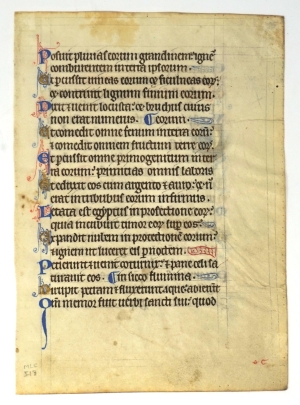 Posuit pluuias eorum grandinem ⁊ ignē
conburentem in terra ipsorum.
Et percussit uineas eorum ⁊ ficulneas eoꝝ:
⁊ contriuit lignum finium eorum.
Dixit ⁊ uenit locusta: ⁊ bruchus cuius
non erat numerus. ¶ eorum.
Et comedit omne fenum in terra eorū:
⁊ comedit omnem fructum terre eoꝝ.
Et percussit omne primogenitum in ter
ra eorum: primitias omnis laboris
Et eduxit eos cum argento ⁊ auro: ⁊ nō
erat in tribubus eorum infirmus.
Letata est egyptus in profectione eoꝝ:
quia incubuit timor eoꝝ sup eos.
Expandit nubem in protectionem eorum:
⁊ ignem ut luceret eis p noctem.
Petierunt ⁊ uenit coturnix: ⁊ pane celi sa
turauit eos. ¶ in sicco flumina.
Dirupit petram ⁊ fluxerunt aque: abierūt
Qm̄ memor fuit uerbi sancti sui: quod